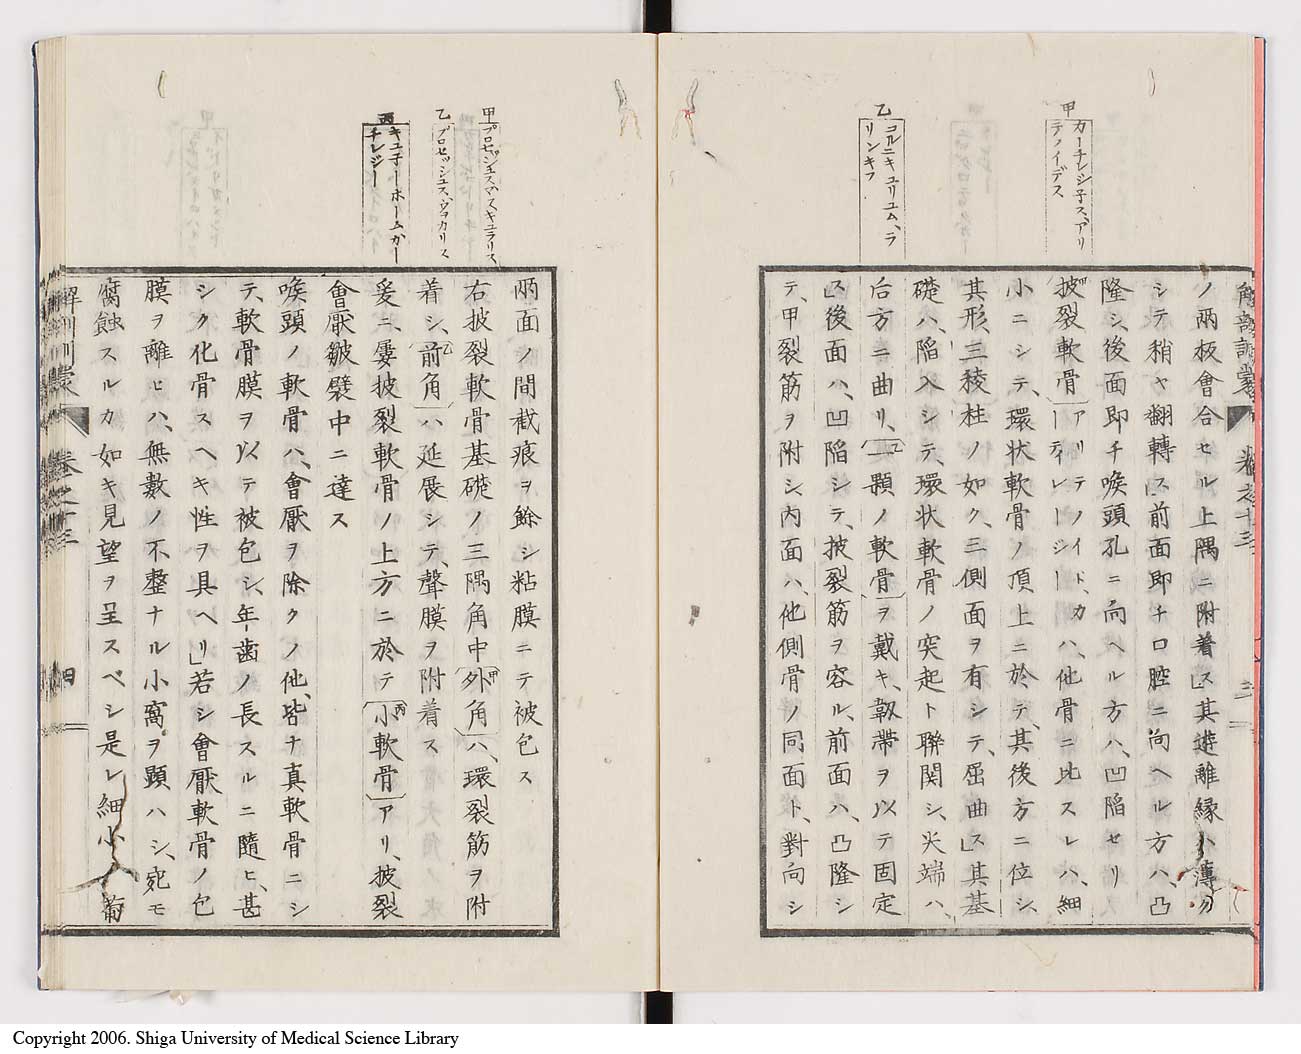 甲
カーチレジ子ス、アリ
テノイデス
乙
コルニキュリユム、ラ
リンキス
解剖訓蒙
巻之十三
三
ノ兩板會合セル上隅ニ附着」ス其遊離縁ハ薄クノ
シテ稍ヤ翻轉」ス前面即チ口腔ニ向ヘル方ハ、凸
隆シ、後面即チ喉頭孔ニ向ヘル方ハ、凹陷セリ
披裂軟骨アリテノイド、カーティレージーハ、他骨ニ比スレハ、細
小ニシテ、環状軟骨ノ頂上ニ於テ、其後方ニ位シ、
其形、三稜柱ノ如ク、三側面ヲ有シテ、屈曲」ス其基
礎ハ、陷入シテ、環状軟骨ノ突起ト聯関シ、尖端ハ、
后方ニ曲リ、乙一顆ノ軟骨ヲ戴キ、靱帶ヲ以テ固定
」ス後面ハ、凹陷シテ、披裂筋ヲ容ル、前面ハ、凸隆シ
テ、甲裂筋ヲ附シ、内面ハ、他側骨ノ同面ト、對向シ
甲
プロセッシュスマスキュラリス
乙
プロセッシュス、ヴヲカリス
丙
キユ子ーホームカー
チレジー
兩面ノ間截痕ヲ餘シ粘膜ニテ被包ス
右披裂軟骨基礎ノ三隅角中甲外角ハ、環裂筋ヲ附
着シ、乙前角ハ延展シテ、聲膜ヲ附着ス
爰ニ、屡披裂軟骨ノ上方ニ於テ丙小軟骨アリ、披裂
會厭皺襞中ニ達ス
喉頭ノ軟骨ハ、會厭ヲ除クノ他、皆ナ真軟骨ニシ
テ、軟骨膜ヲ以テ被包シ、年齒ノ長スルニ隨ヒ、甚
シク化骨スヘキ性ヲ具ヘリ」若シ會厭軟骨ノ包
膜ヲ離ヒハ、無數ノ不整ナル小窩ヲ顕ハシ、宛モ
腐蝕スルカ如キ見望ヲ呈スベシ是レ細小ノ葡
解剖訓蒙
巻之十三
四
Copyright 2006. Shiga University of Medical Science Library